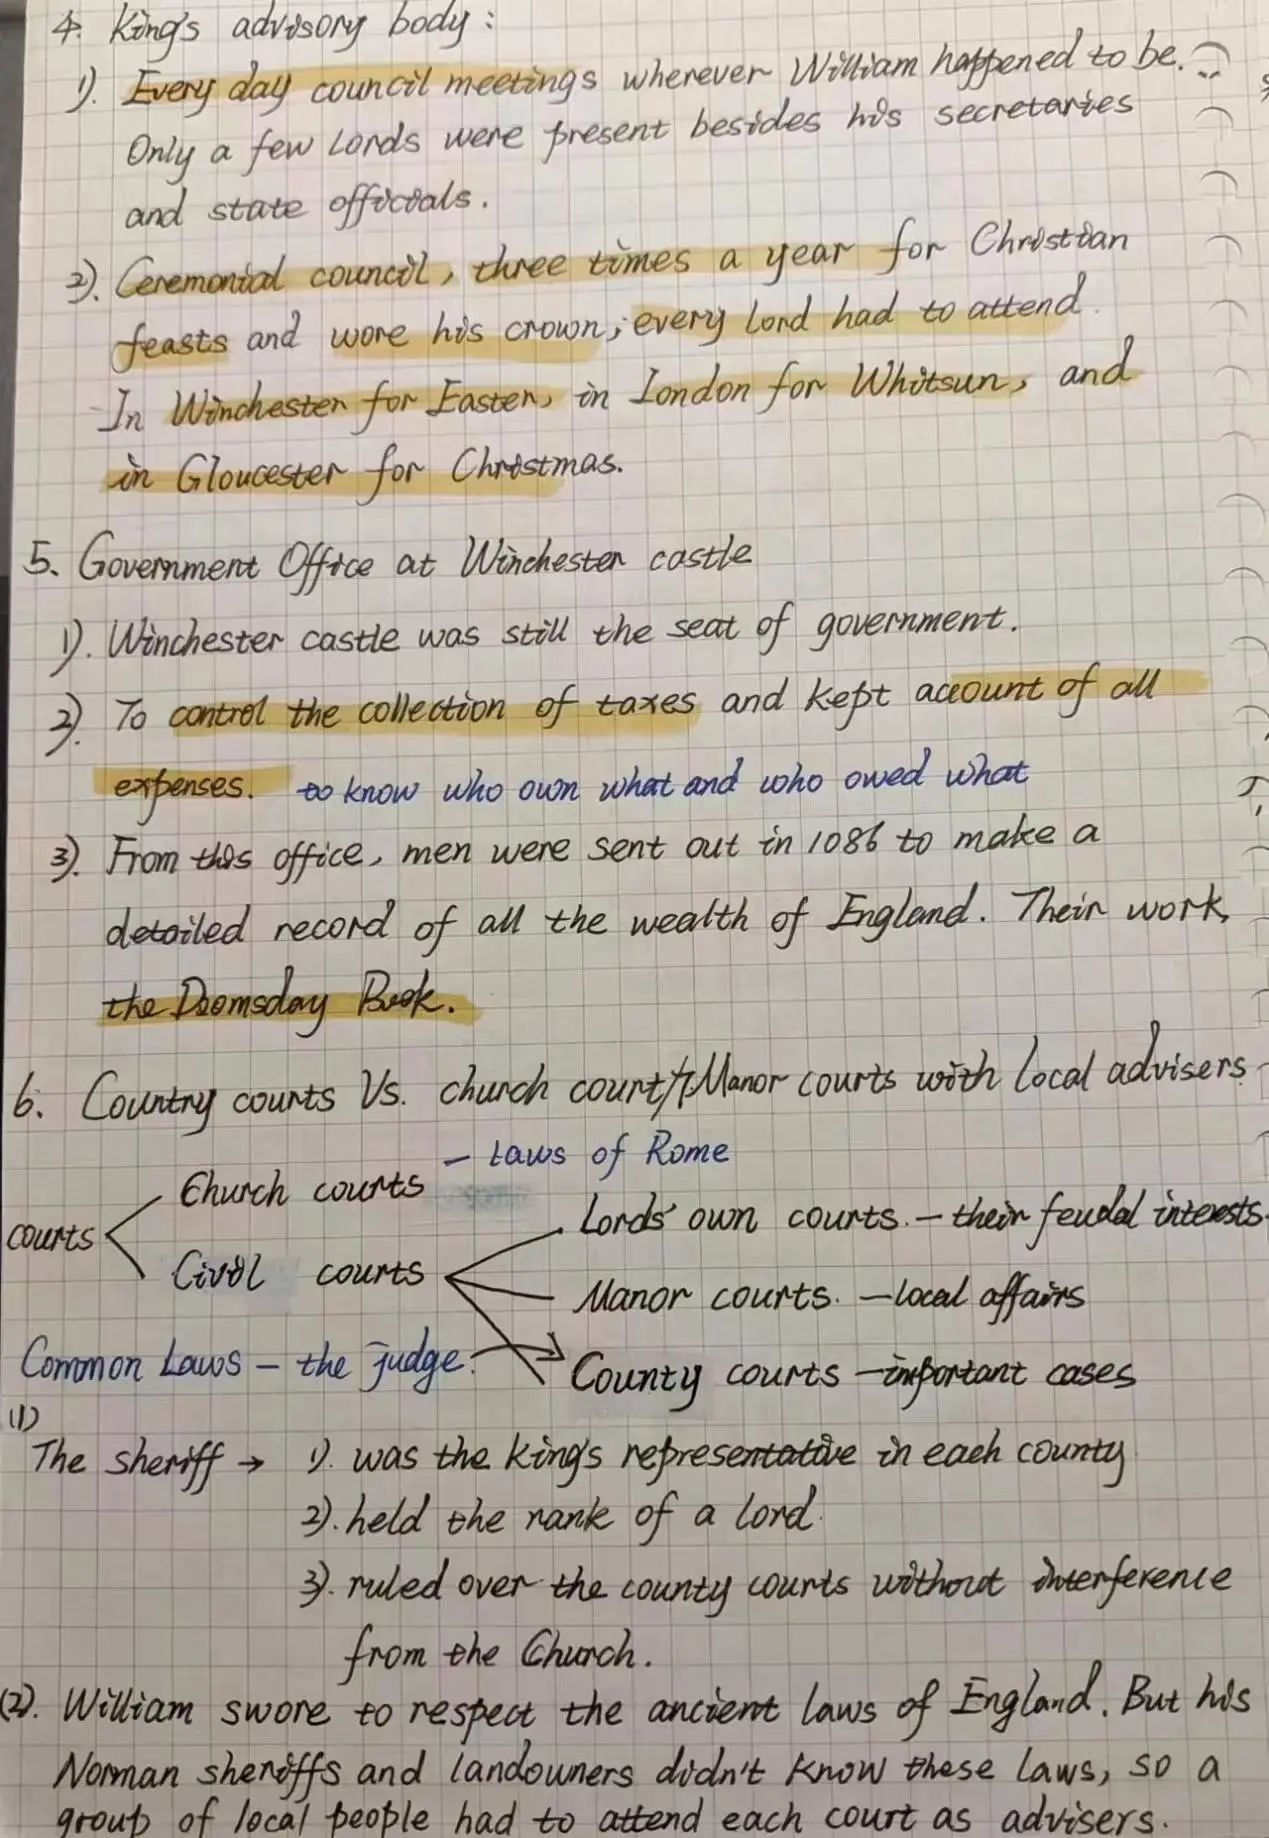 4. King's advisory body:
1). Every day council meetings wherever William happened to be.
Only a few Lords were present besides his secretaries
and state officials.
2). Ceremonial council, three times a year for Christian
feasts and wore his crown; every Lord had to attend.
In Winchester for Easter, in London for Whitsun, and
in Gloucester for Christmas.
5. Government Office at Winchester castle
1). Winchester castle was still the seat of government.
2) To control the collection of taxes and kept account of all
expenses. to know who own what and who owed what
3). From this office, men were sent out in 1086 to make a
detailed record of all the wealth of England. Their work,
the Doomsday Book.
6. Country courts Vs. church court/Manor courts with local advisers
Church courts - Laws of Rome
courts
Lords' own courts. - their feudal interests.
Civil courts
Manor courts. - local affairs
Common Laws - the judge.
County courts - important cases
(1)
The sheriff → 1). was the king's representative in each county
2). held the rank of a lord.
3). ruled over the county courts without interference
from the Church.
(2). William swore to respect the ancient laws of England. But his
Norman sheriffs and landowners didn't know these laws, so a
group of local people had to attend each court as advisers.